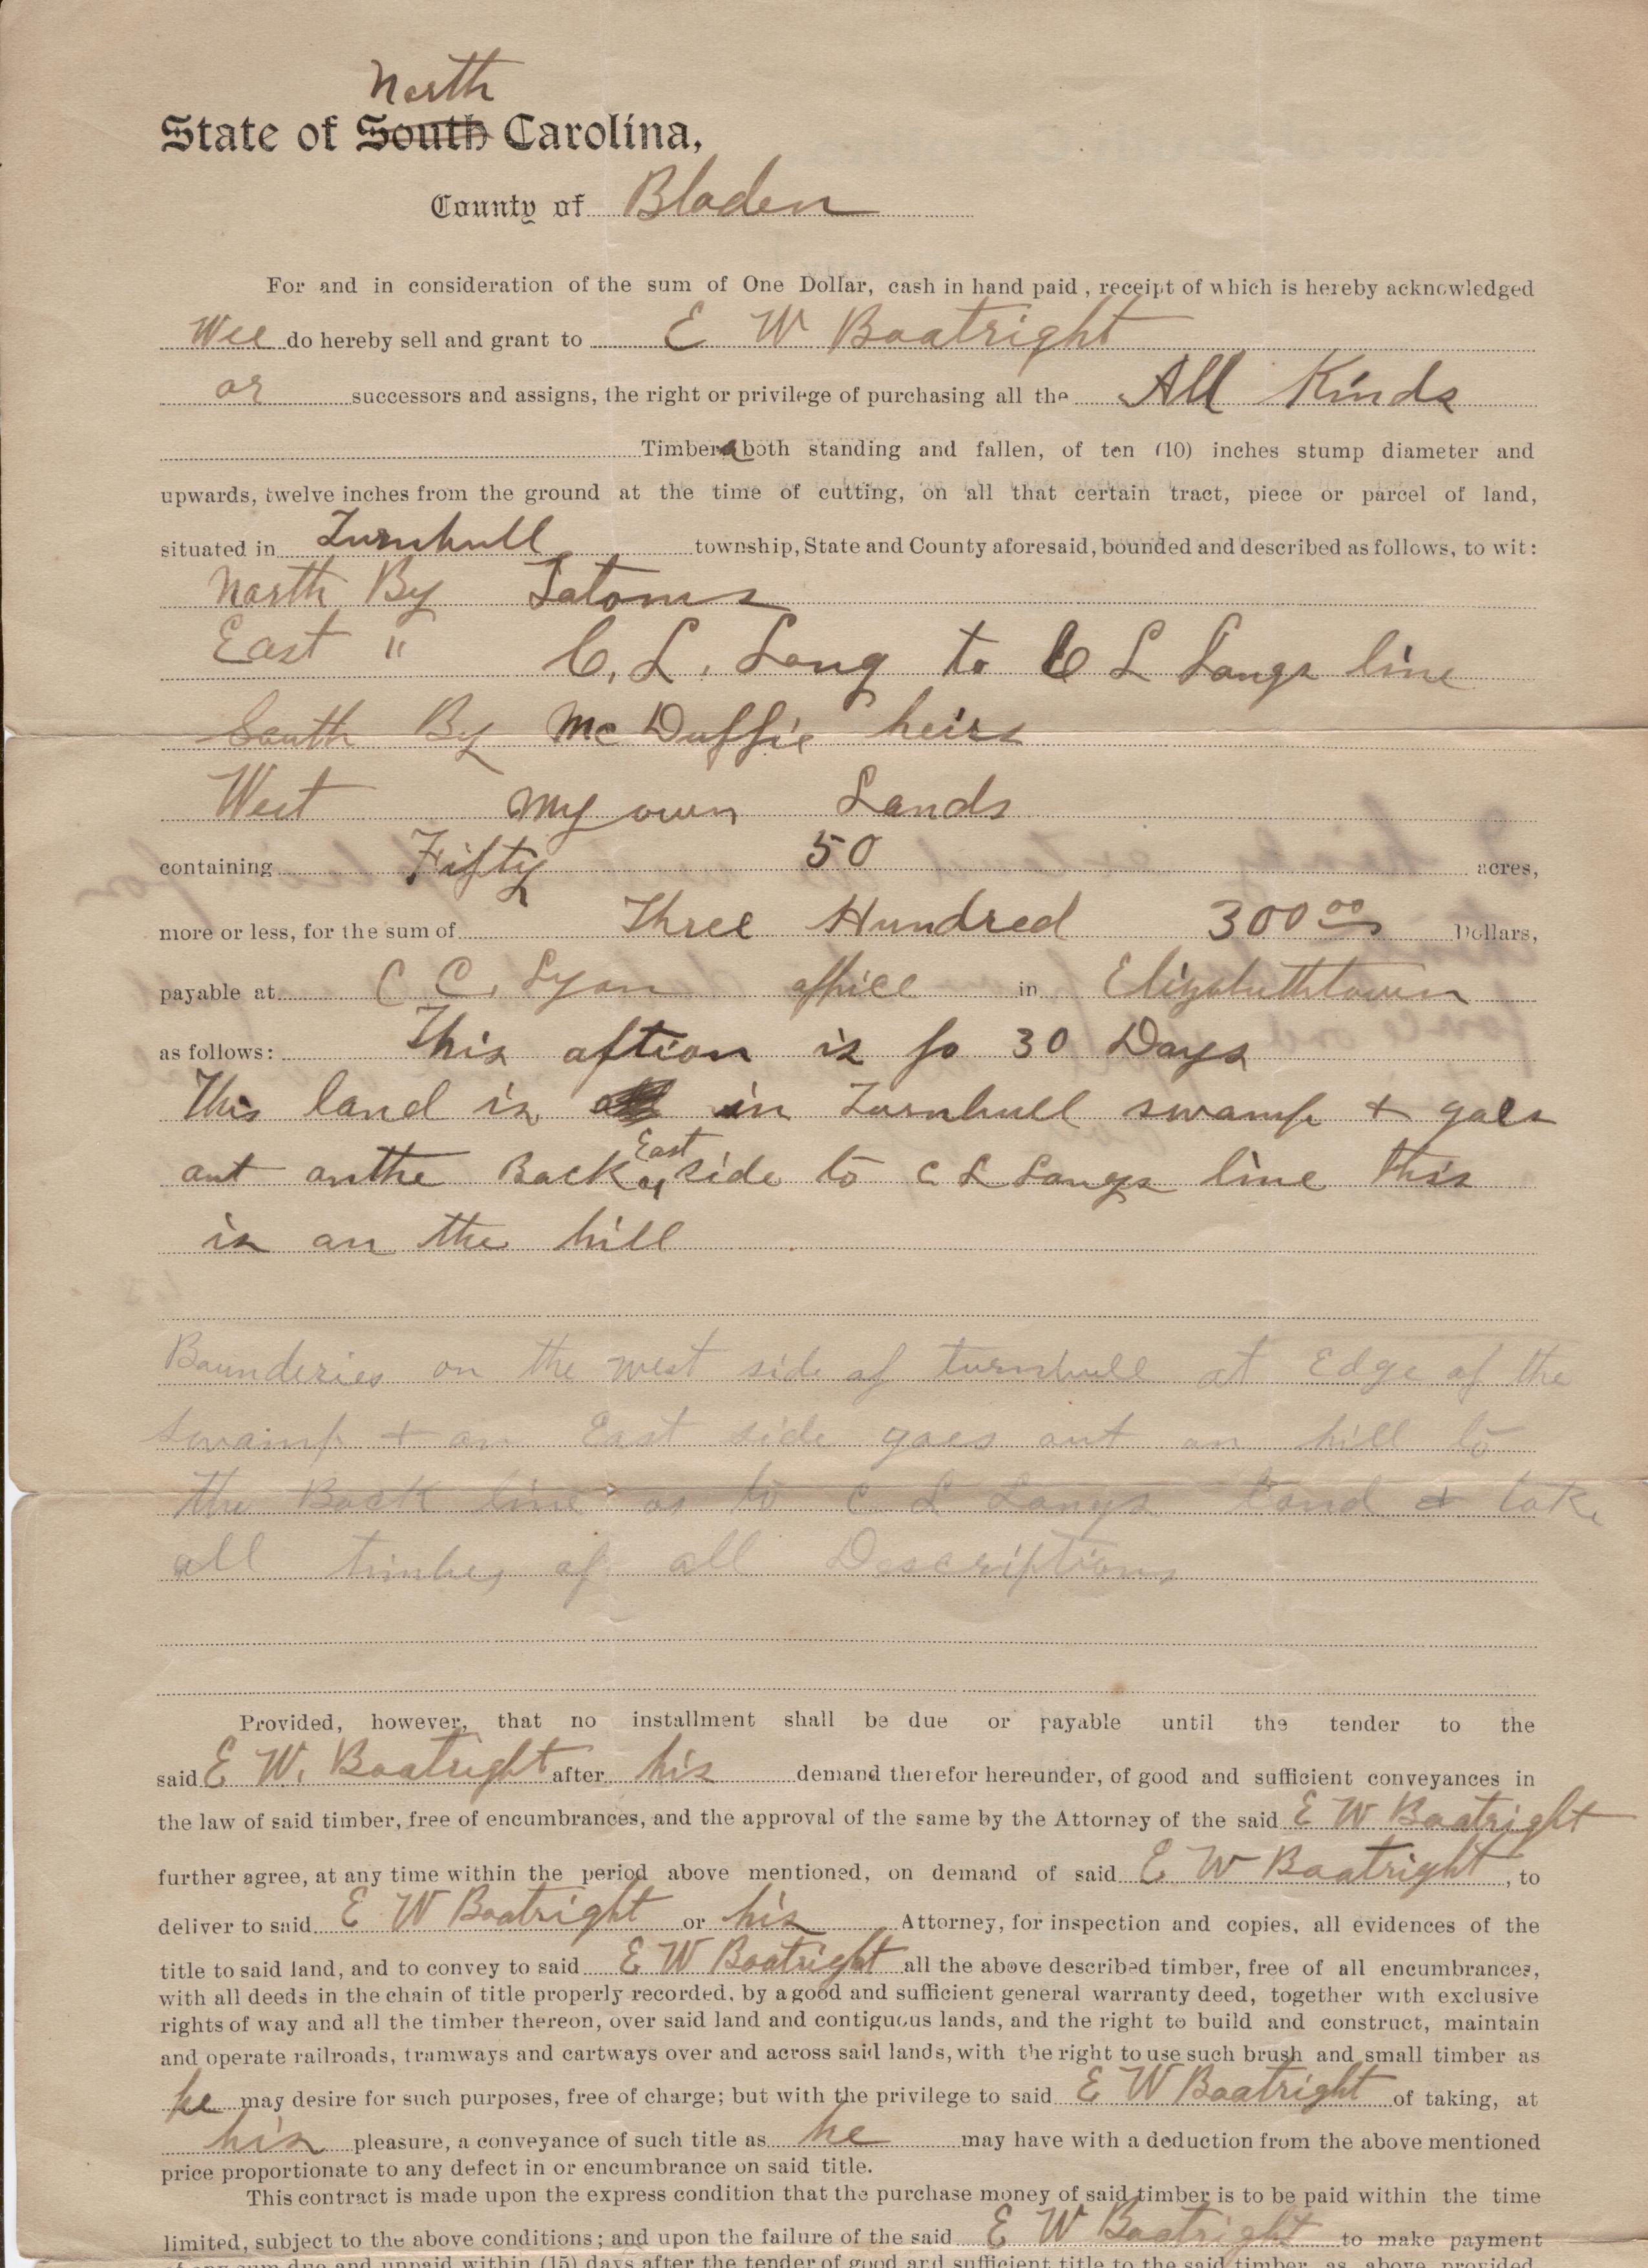 North
State of South Carolina,
County of Bladen
For and in consideration of the sum of One Dollar, cash in hand paid, receipt of which is hereby acknowledged
Wee do hereby sell and grant to E W Boatright
or successors and assigns, the right or privilege of purchasing all the All Kinds
Timber both standing and fallen, of ten (10) inches stump diameter and
upwards, twelve inches from the ground at the time of cutting, on all that certain tract, piece or parcel of land,
situated in Turnbull township, State and County aforesaid, bounded and described as follows, to wit:
North By Tatoms
East " C. L. Long to C L Longs line
South By McDuffie heirs
West my own Lands
containing Fifty 50 acres,
more or less, for the sum of Three Hundred 300 00 Dollars,
payable at C C. Lyon office in Elizabethtown
as follows: This aftion is fo 30 Days
This land is in Turnbull swamp + goes
East
out on the Back side to C L Longs line this
is on the hill
Bounderies on the west side of turnbull at Edge of the
swamp + on East side goes out on hill to
the Back line or to C L Longs Land & take
all timber of all Descriptions
Provided, however, that no installment shall be due or payable until the tender to the
said E W. Boatright after his demand therefor hereunder, of good and sufficient conveyances in
the law of said timber, free of encumbrances, and the approval of the same by the Attorney of the said E W Boatright
further agree, at any time within the period above mentioned, on demand of said E W Boatright, to
deliver to said E W Boatright or his Attorney, for inspection and copies, all evidences of the
title to said land, and to convey to said E W Boatright all the above described timber, free of all encumbrances,
with all deeds in the chain of title properly recorded, by a good and sufficient general warranty deed, together with exclusive
rights of way and all the timber thereon, over said land and contiguous lands, and the right to build and construct, maintain
and operate railroads, tramways and cartways over and across said lands, with the right to use such brush and small timber as
he may desire for such purposes, free of charge; but with the privilege to said E W Boatright of taking, at
his pleasure, a conveyance of such title as he may have with a deduction from the above mentioned
price proportionate to any defect in or encumbrance on said title.
This contract is made upon the express condition that the purchase money of said timber is to be paid within the time
limited, subject to the above conditions; and upon the failure of the said E W Boatright to make payment
of any sum due and unpaid within (15) days after the tender of good and sufficient title to the said timber, as above provided,